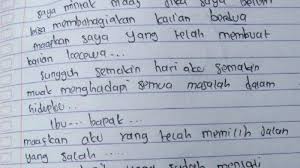 saya minta maaf jika saya belum
bisa membahagiakan kalian berdua
maafkan saya yang telah membuat
kalian kecewa...
sungguh semakin hari aku semakin
muak menghadapi semua masalah dalam
hidupku...
Ibu... bapak...
maafkan aku yang telah memilih jalan
yang salah....